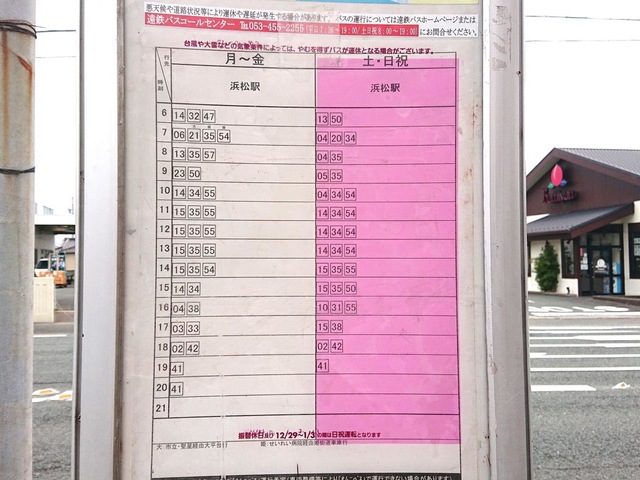 悪天候や道路状況等により運休や遅延が発生する場合があります。 バスの運行については遠鉄バスホームページまたは
遠鉄バスコールセンター ℡053-455-2255 にお問合せください。
台風や大雪などの気象条件によっては、やむを得ずバスが運休となる場合がございます。
行先 時刻 月～金 土・日祝
浜松駅 浜松駅
6 14 32 47 13 50
7 06 21 35 54 04 20 34
8 13 35 57 04 35
9 23 50 05 35
10 14 34 55 04 34 54
11 15 35 55 14 34 54
12 15 35 55 14 34 54
13 15 35 55 14 34 54
14 15 35 54 15 35 55
15 14 34 15 35 50
16 04 38 10 31 55
17 03 33 15 38
18 02 42 02 42
19 41 41
20 41
21
振替休日及び 12/29～1/3の間は日祝運転となります
大:市立・聖星経由大平台行 姫:せいれい病院経由姫街道車庫行